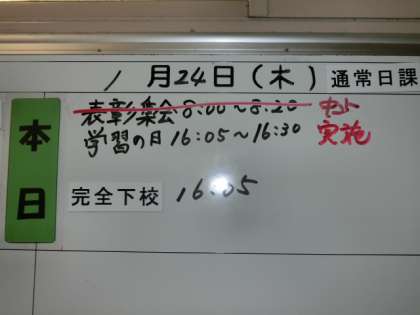 1月24日(木) 通常日課
本日
表彰集会8:00~8:20 中止
学習の日16:05~16:30 実施
完全下校 16:05